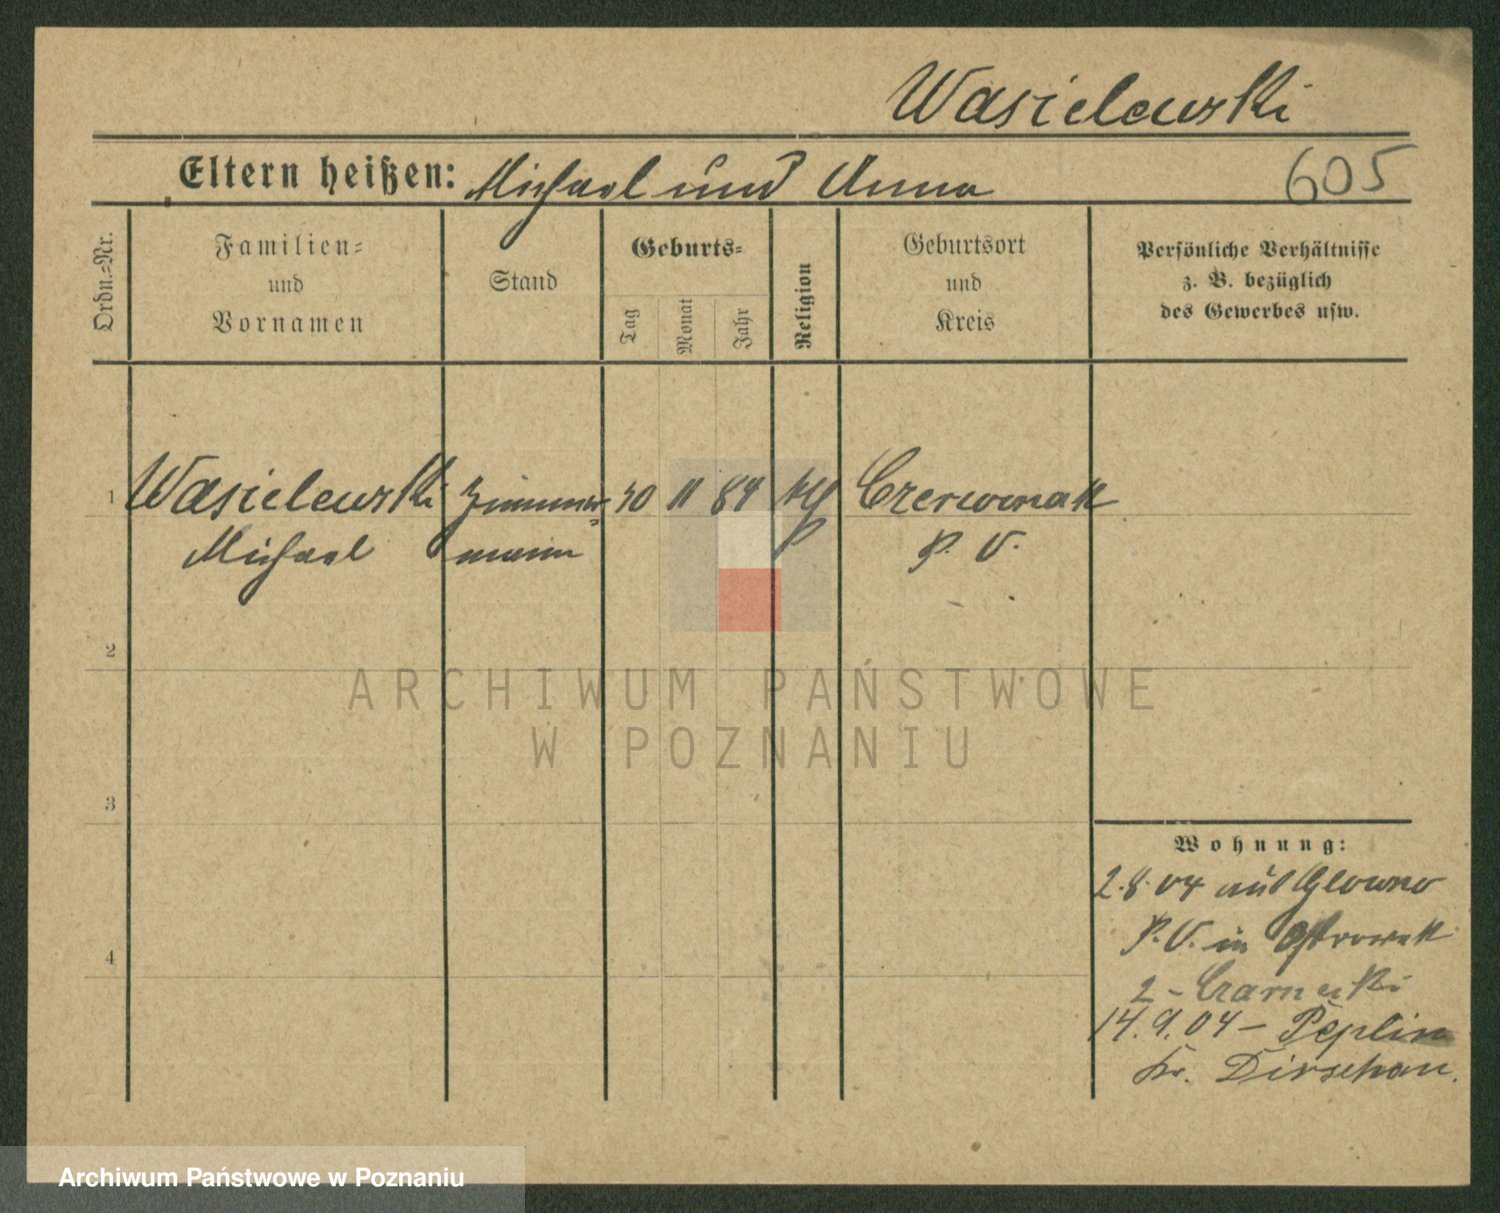 Wasielewski
Eltern heißen: Michael und Anna
605
Ordn.=Nr.
Familien=
und
Vornamen
Stand
Geburts=
Tag
Monat
Jahr
Religion
Geburtsort
und
Kreis
Persönliche Verhältnisse
z. B. bezüglich
des Gewerbes usw.
1 Wasielewski Zimmer= 30 11 84 kth Czerwonak
Michael mann P. O.
2
3
4
Wohnung:
2.8.04 aus Glowno
P. O. in Ostrowek
2 - Czarnecki
14.9.04 - Peplin
Kr. Dirschau.
ARCHIWUM PAŃSTWOWE
W POZNANIU
Archiwum Państwowe w Poznaniu